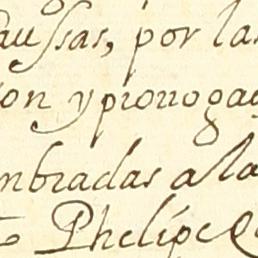 caussas, por las
on y prorrogac
mbradas a la
Phelipe